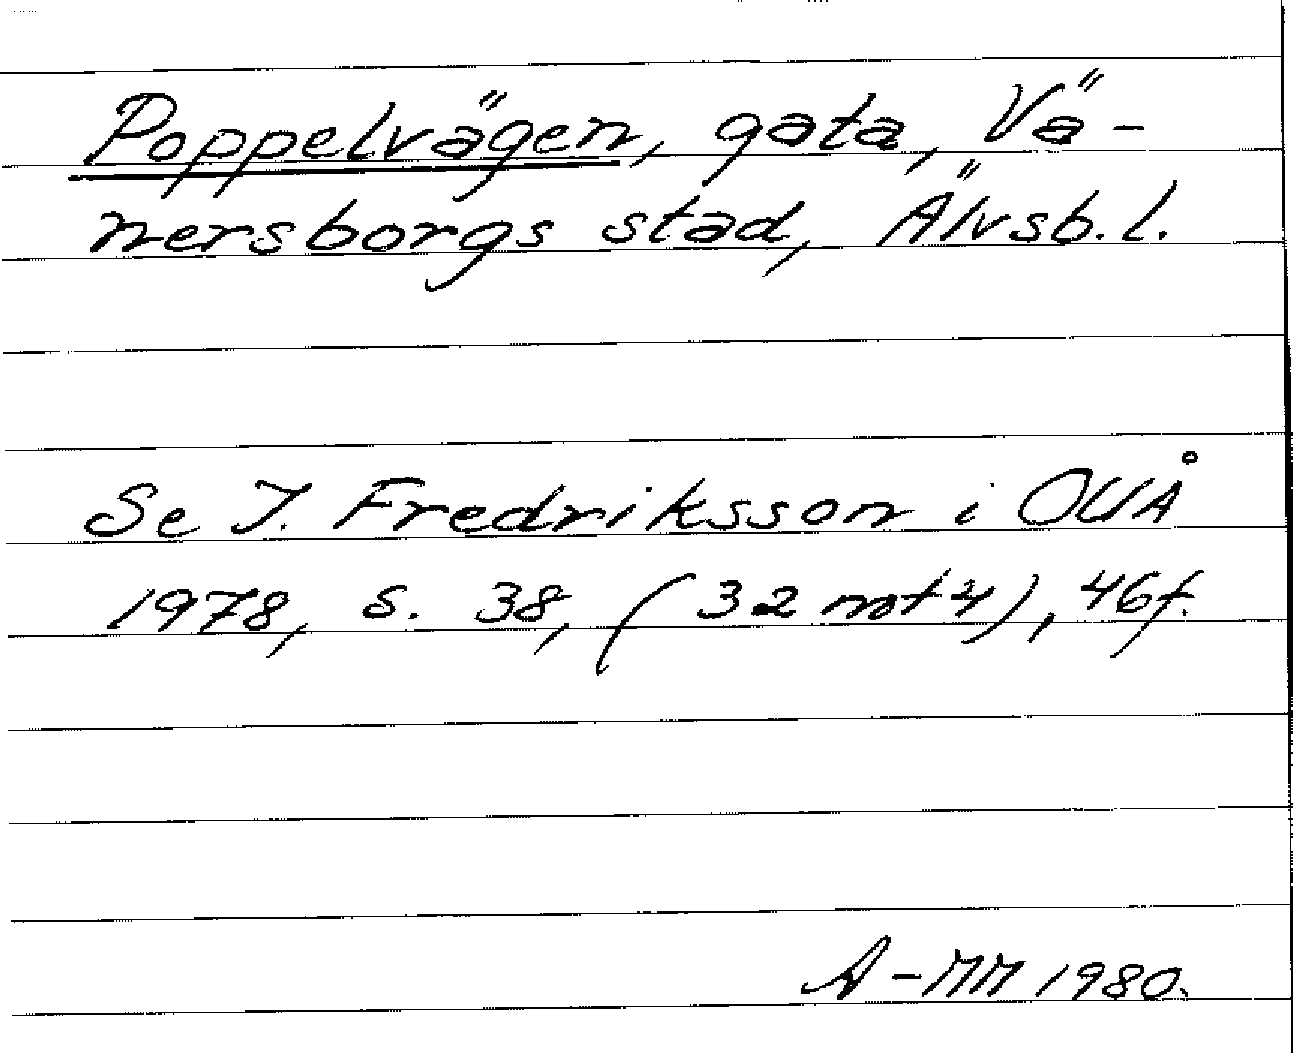 Poppelvägen, gata, Vä-
nersborgs stad, Älvsb. l.
Se I. Fredriksson i OUÅ
1978, s. 38, (32 not 4), 46f.
A-MM 1980.